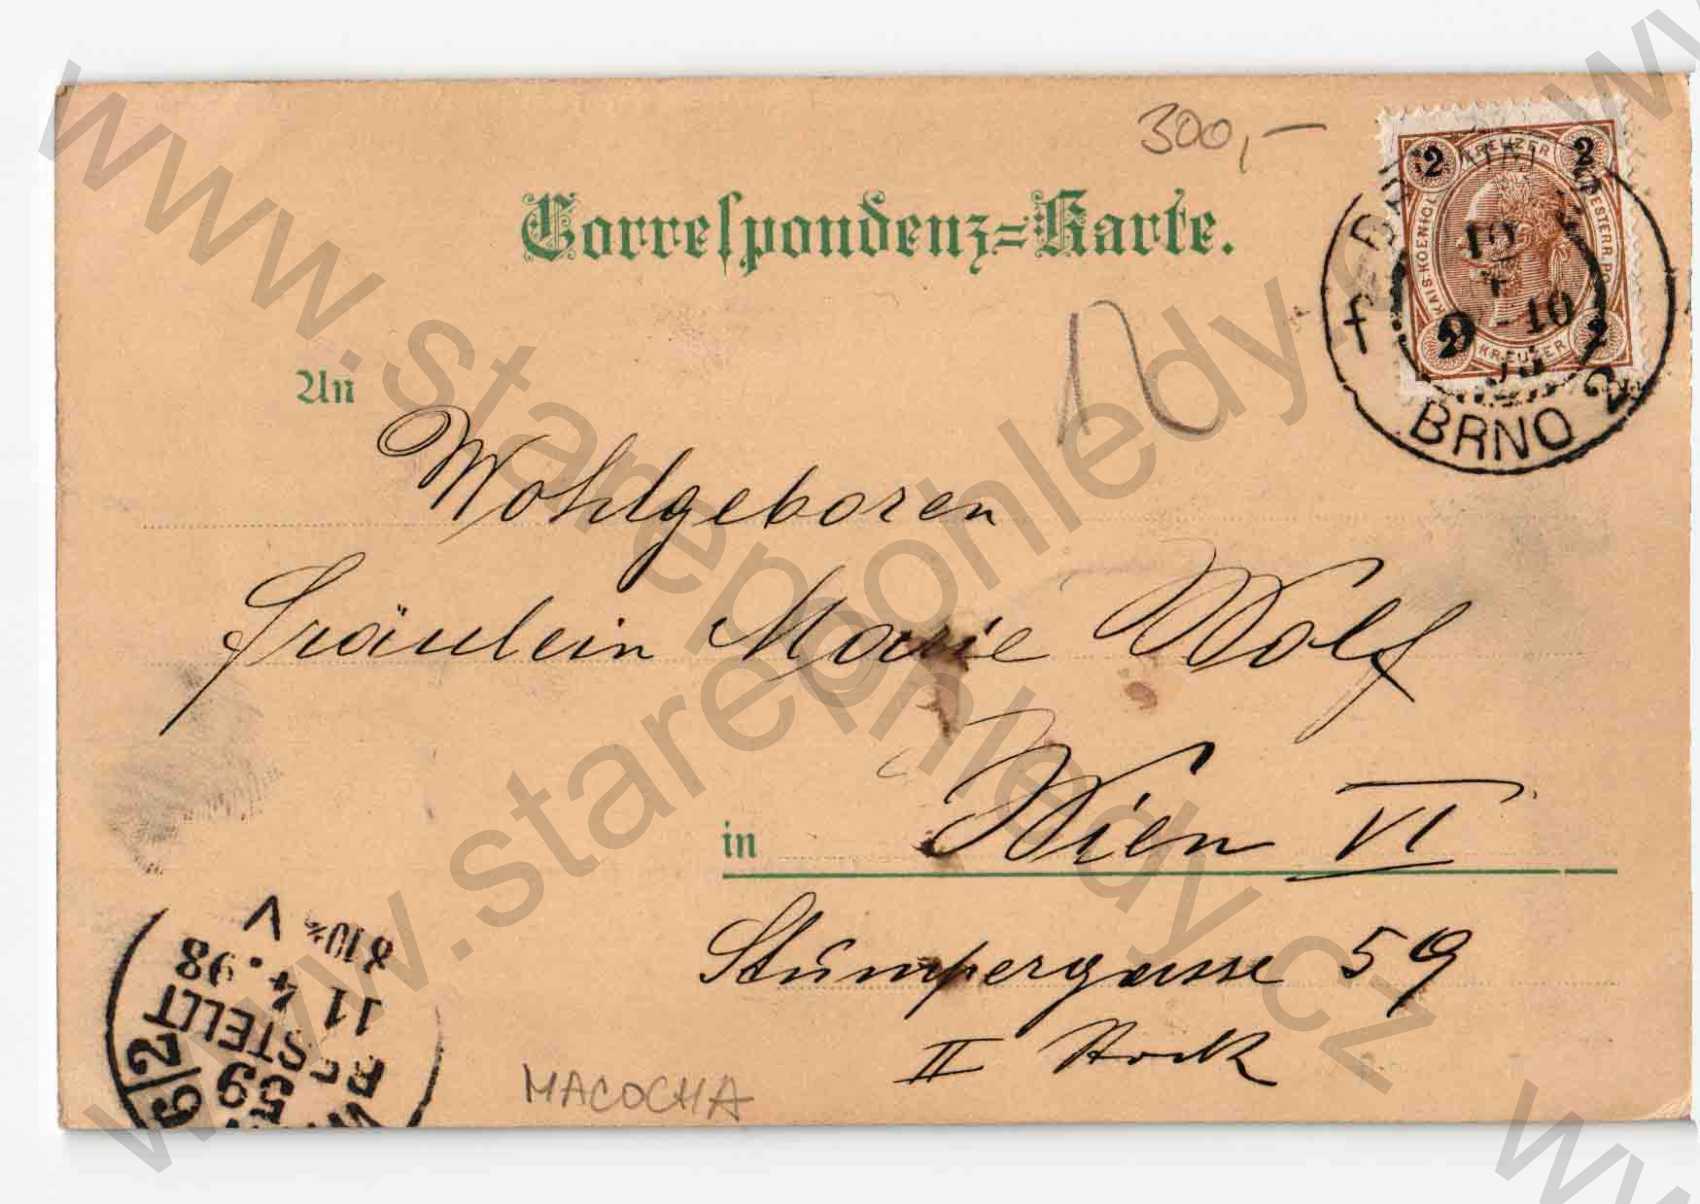 300,-
Correspondenz=Karte.
2 KREUZER 2
KAIS. KOENIGL.
OESTERR. PO
2 KREUZER 2
9-10
BRNO 2
An
12
Wohlgeboren
Fräulein Marie Wolf
in Wien VI
Stumpergasse 59
II Stock
MACOCHA
WIEN
6/2
59
BESTELLT
11 4.98
8.10½ V
www.starepohledy.cz
www.starepohledy.cz